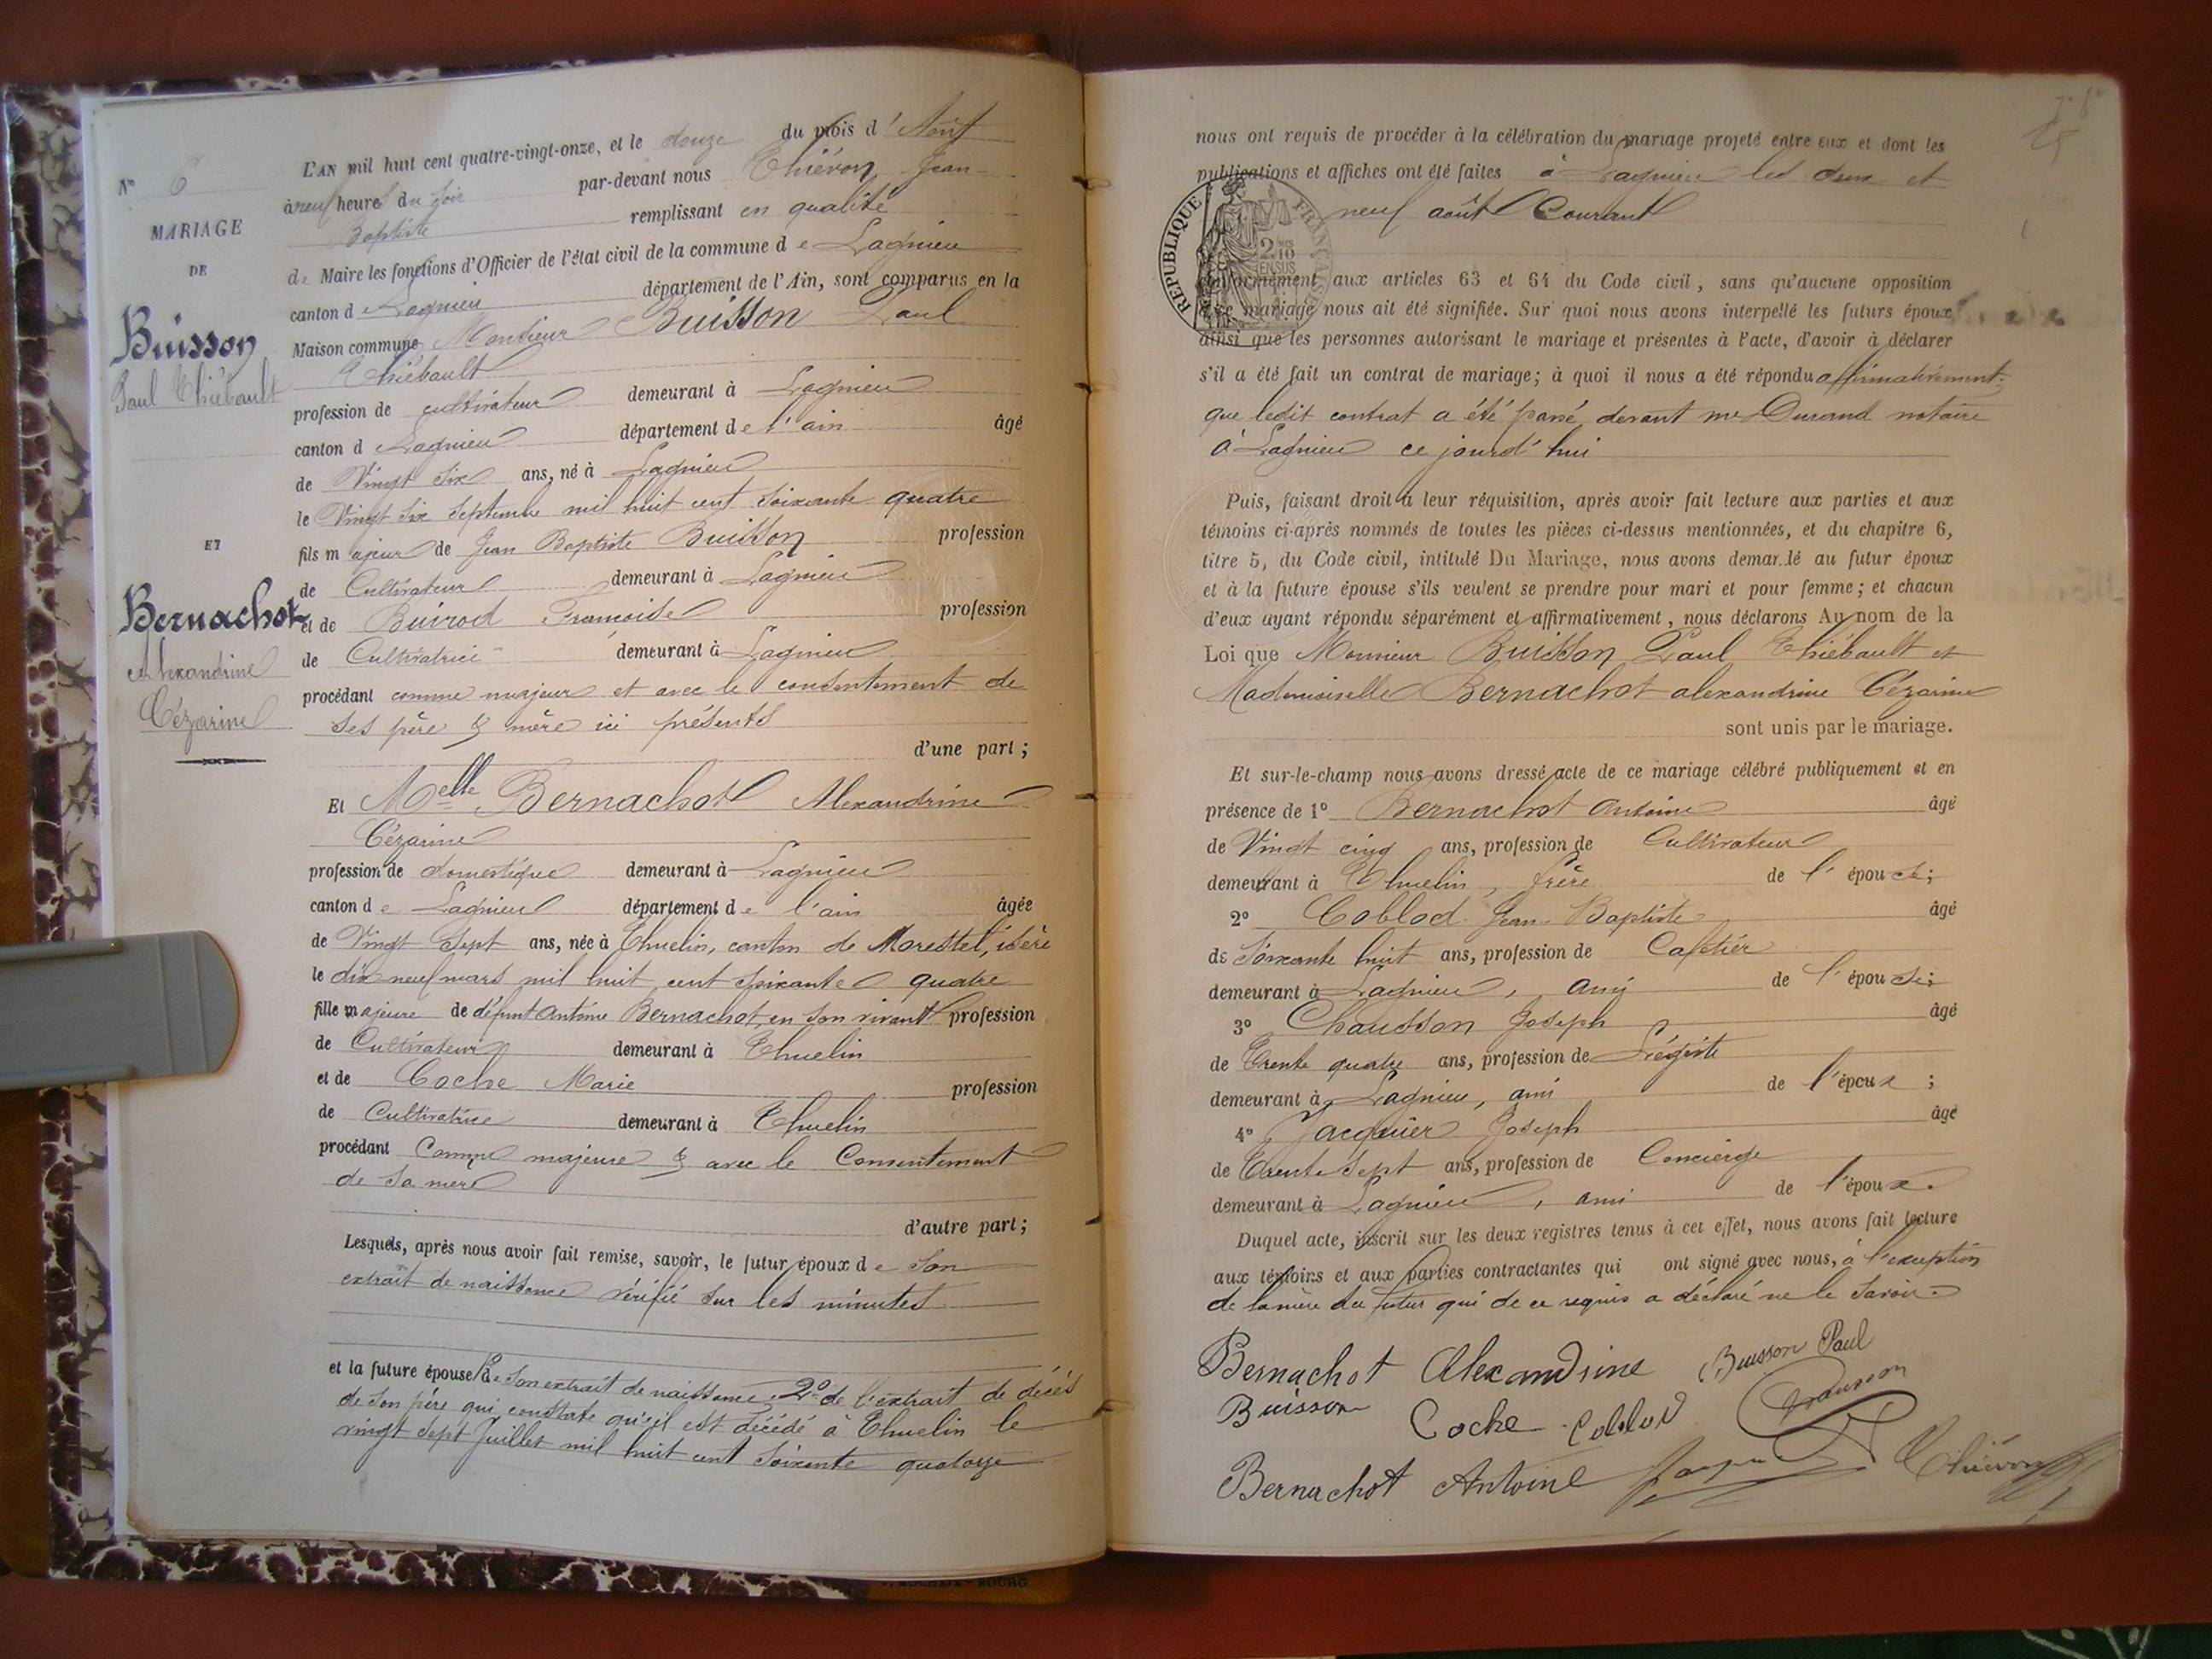 N° 6
MARIAGE
DE
Buisson
Paul Thiébault
ET
Bernachot
Alexandrine
Cézarine
L'AN mil huit cent quatre-vingt-onze, et le douze du mois d'Août
à neuf heures du soir par-devant nous Thiévon Jean-
Baptiste remplissant en qualité
de Maire les fonctions d'Officier de l'état civil de la commune de Lagnieu
canton de Lagnieu département de l'Ain, sont comparus en la
Maison commune Monsieur Buisson Paul
Thiébault
profession de cultivateur demeurant à Lagnieu
canton de Lagnieu département de l'ain âgé
de Vingt six ans, né à Lagnieu
le Vingt six Septembre mil huit cent soixante quatre
fils majeur de Jean Baptiste Buisson profession
de Cultivateur demeurant à Lagnieu
et de Buirod Françoise profession
de Cultivatrice demeurant à Lagnieu
procédant comme majeur et avec le consentement de
ses père & mère ici présents
d'une part;
Et Melle Bernachot Alexandrine
Cézarine
profession de domestique demeurant à Lagnieu
canton de Lagnieu département de l'ain âgée
de Vingt Sept ans, née à Thuelin, canton de Morestel, isère
le dix neuf mars mil huit cent soixante quatre
fille majeure de défunt Antoine Bernachot, en son vivant profession
de Cultivateur demeurant à Thuelin
et de Coche Marie profession
de Cultivatrice demeurant à Thuelin
procédant Comme majeure & avec le Consentement
de sa mère
d'autre part;
Lesquels, après nous avoir fait remise, savoir, le futur époux de Son
extrait de naissance vérifié sur les minutes
et la future épouse 1° de son extrait de naissance, 2° de l'extrait de décès
de son père qui constate qu'il est décédé à Thuelin le
vingt sept Juillet mil huit cent soixante quatorze
nous ont requis de procéder à la célébration du mariage projeté entre eux et dont les
publications et affiches ont été faites à Lagnieu les deux et
neuf août Courant
REPUBLIQUE FRANÇAISE
2/10 EN SUS
conformément aux articles 63 et 64 du Code civil, sans qu'aucune opposition
à ce mariage nous ait été signifiée. Sur quoi nous avons interpellé les futurs époux,
ainsi que les personnes autorisant le mariage et présentes à l'acte, d'avoir à déclarer
s'il a été fait un contrat de mariage; à quoi il nous a été répondu affirmativement.
que ledit contrat a été passé devant me Durand notaire
à Lagnieu ce jourd'hui
Puis, faisant droit à leur réquisition, après avoir fait lecture aux parties et aux
témoins ci-après nommés de toutes les pièces ci-dessus mentionnées, et du chapitre 6,
titre 5, du Code civil, intitulé Du Mariage, nous avons demandé au futur époux
et à la future épouse s'ils veulent se prendre pour mari et pour femme; et chacun
d'eux ayant répondu séparément et affirmativement, nous déclarons Au nom de la
Loi que Monsieur Buisson Paul Thiébault et
Mademoiselle Bernachot alexandrine Cézarine
sont unis par le mariage.
Et sur-le-champ nous avons dressé acte de ce mariage célébré publiquement et en
présence de 1° Bernachot Antoine âgé
de Vingt cinq ans, profession de Cultivateur
demeurant à Thuelin, frère de l'épouse;
2° Coblod Jean-Baptiste âgé
de Soixante huit ans, profession de Cafetier
demeurant à Lagnieu, ami de l'épouse;
3° Chausson Joseph âgé
de Trente quatre ans, profession de
demeurant à Lagnieu, ami de l'époux;
4° Jacquier Joseph âgé
de Trente Sept ans, profession de Concierge
demeurant à Lagnieu, ami de l'époux.
Duquel acte, inscrit sur les deux registres tenus à cet effet, nous avons fait lecture
aux témoins et aux parties contractantes qui ont signé avec nous, à l'exception
de la mère du futur qui de ce requis a déclaré ne le savoir.
Bernachot Alexandrine Buisson Paul
Buisson Coche Coblod Chausson
Bernachot Antoine Thiévon